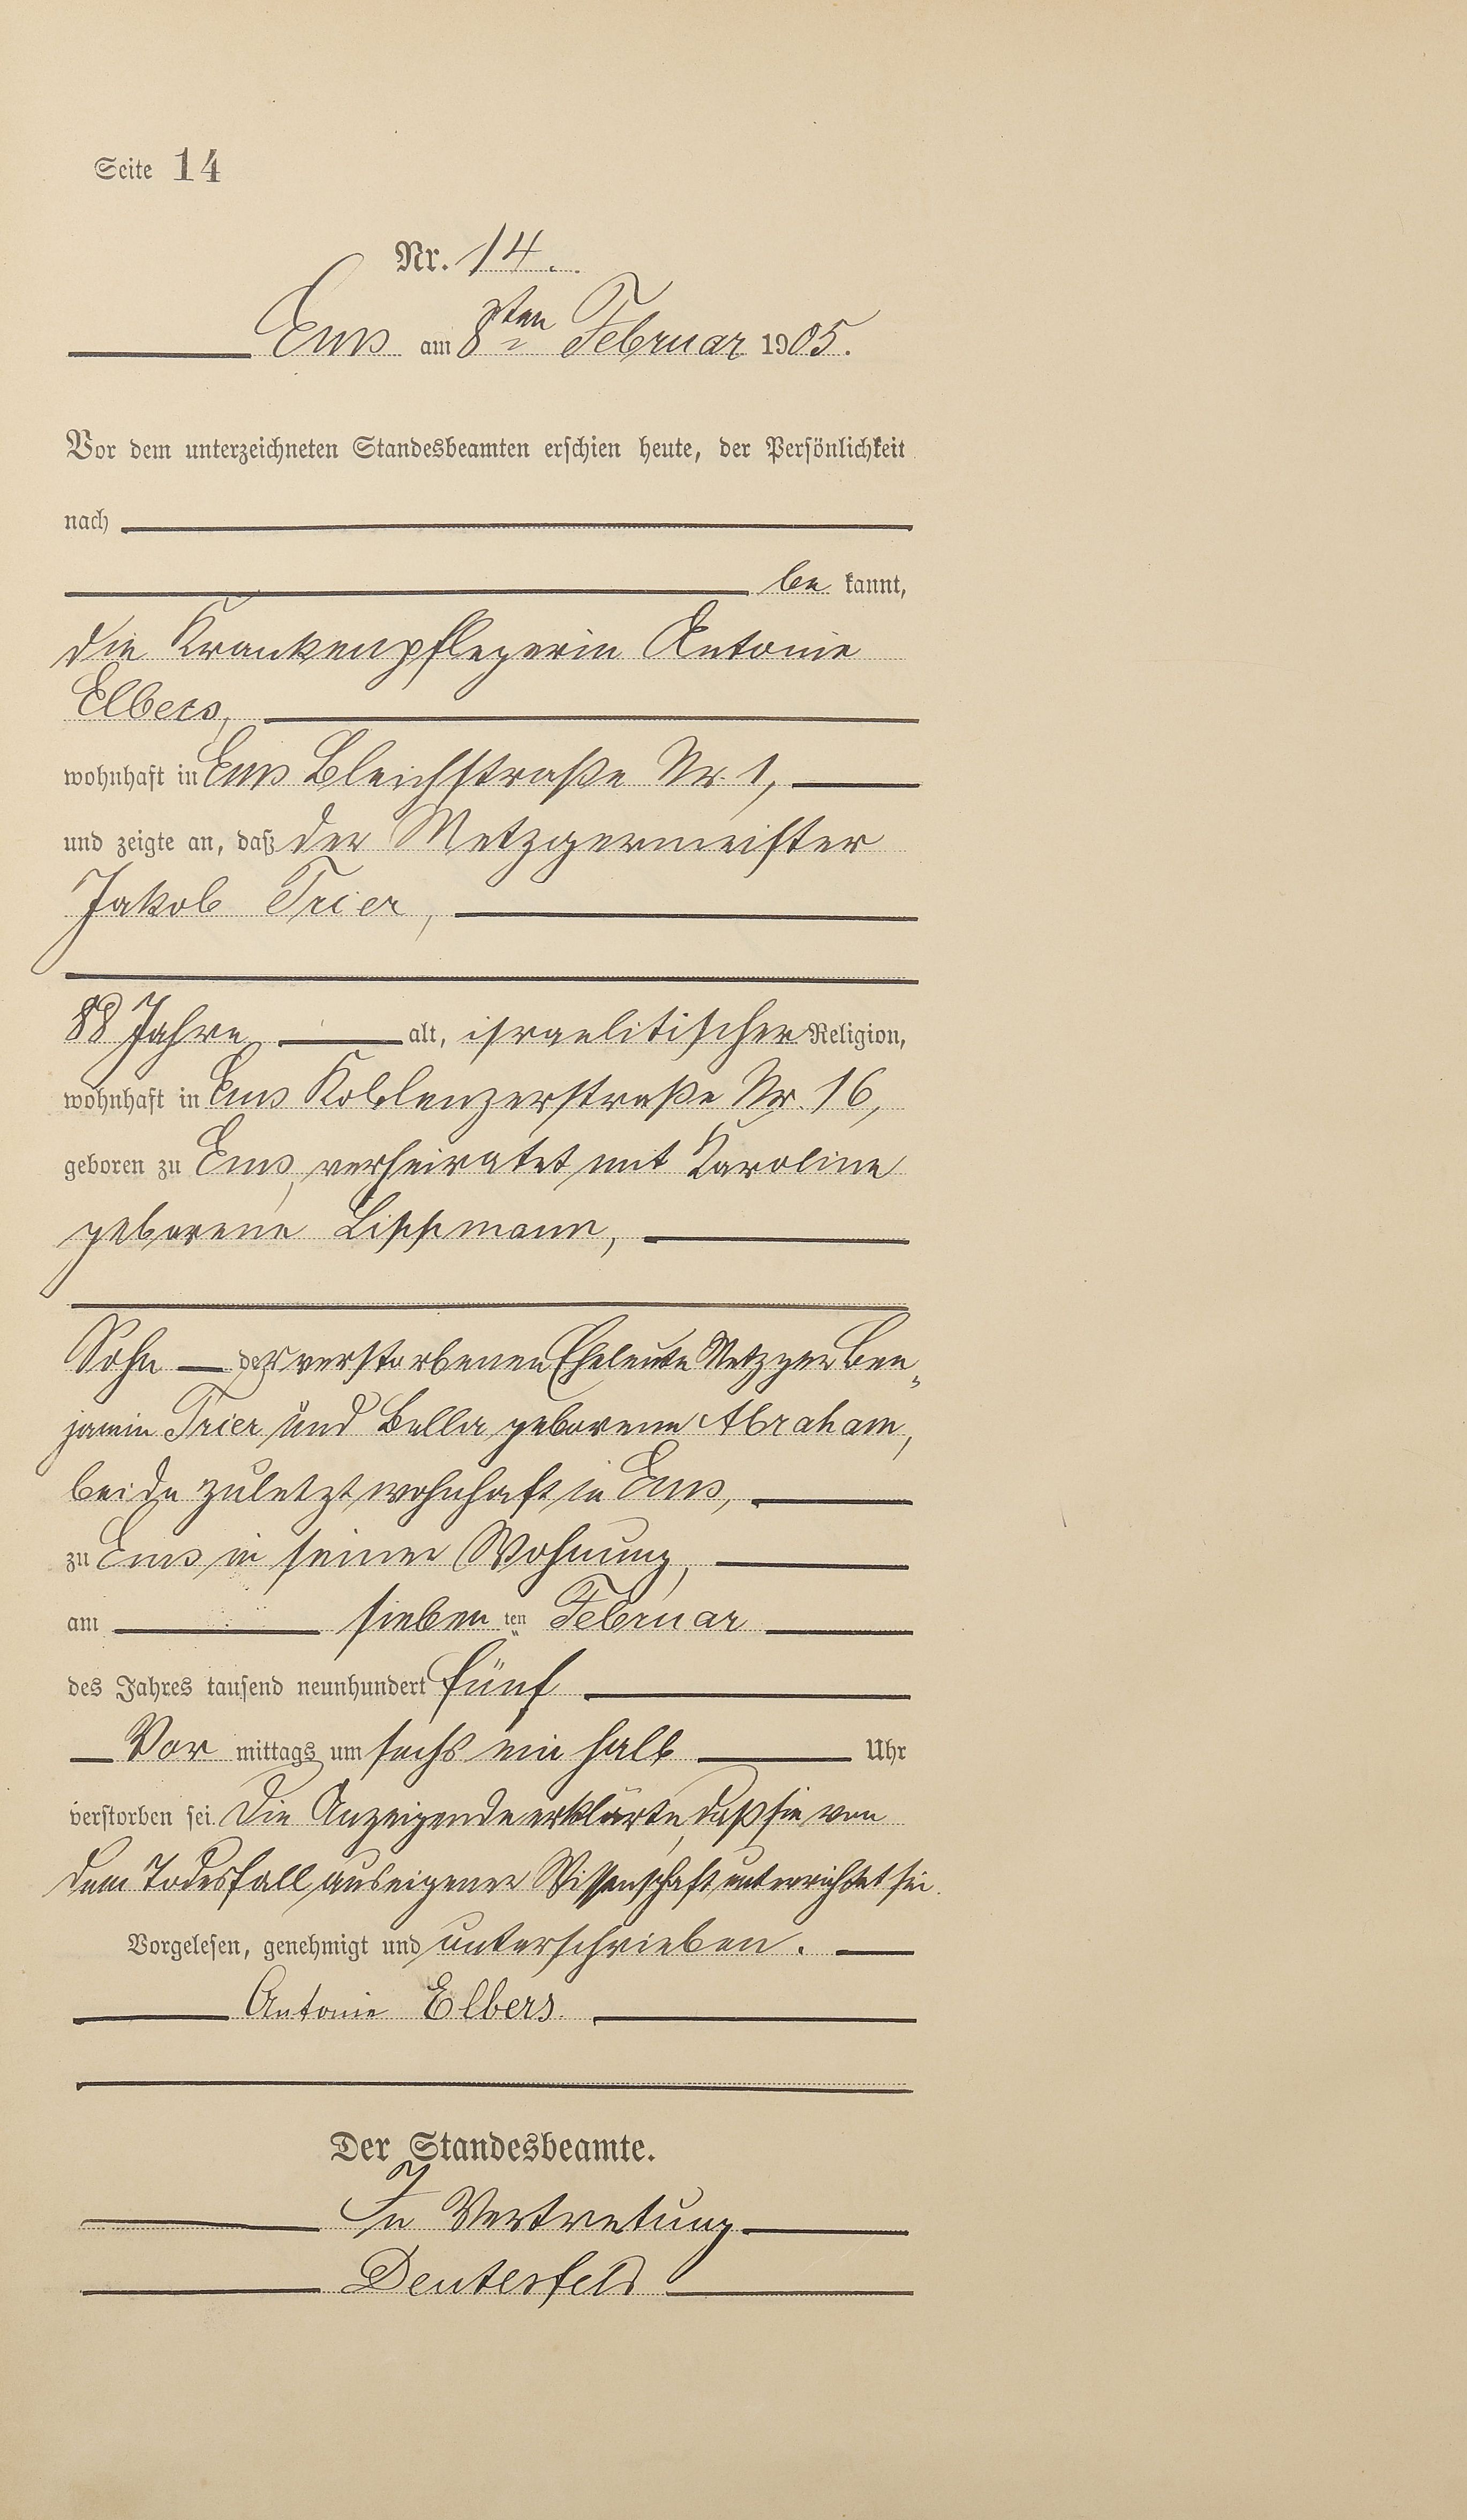 Seite 14
Nr. 14.
Ems am 8ten Februar 1905.
Vor dem unterzeichneten Standesbeamten erschien heute, der Persönlichkeit
nach
be kannt,
die Krankenpflegerin Antonie
Elbers,
wohnhaft in Ems Bleichstraße Nr. 1,
und zeigte an, daß der Metzgermeister
Jakob Trier,
88 Jahre alt, israelitischer Religion,
wohnhaft in Ems Koblenzerstraße Nr. 16,
geboren zu Ems, verheiratet mit Karoline
geborene Lippmann,
Sohn der verstorbenen Eheleute Metzger Ben„
jamin Trier und Bella geborene Abraham,
beide zuletzt wohnhaft in Ems,
zu Ems in seiner Wohnung,
am sieben ten Februar
des Jahres tausend neunhundert fünf
Vor mittags um sechs ein halb Uhr
verstorben sei. Die Anzeigende erklärte, daß sie von
dem Todesfall aus eigener Wissenschaft unterrichtet sei.
Vorgelesen, genehmigt und unterschrieben.
Antonie Elbers.
Der Standesbeamte.
In Vertretung
Deutesfeld